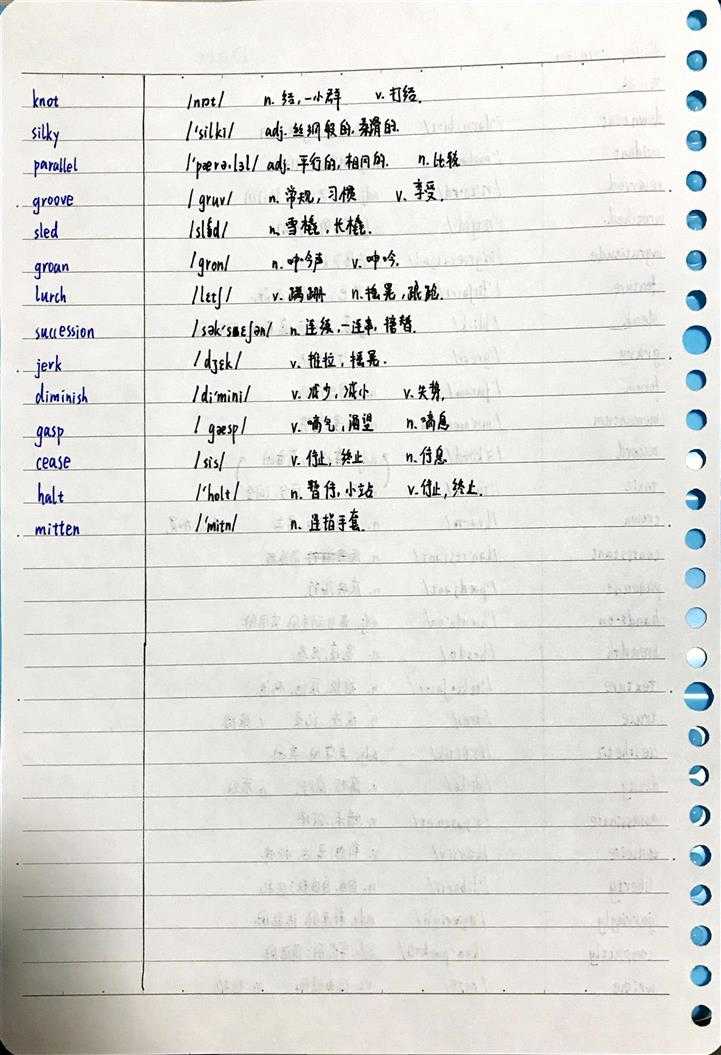 knot /nɒt/ n. 结,一小群 v. 打结.
silky /'silkɪ/ adj. 丝绸般的,柔滑的.
parallel /'pærə.lɔl/ adj. 平行的,相同的. n. 比较
groove /gruv/ n. 常规,习惯 v. 享受.
sled /slɛd/ n. 雪橇,长橇.
groan /gron/ n. 呻吟声 v. 呻吟.
lurch /lɛtʃ/ v. 蹒跚 n. 摇晃,踉跄.
succession /sək'sɛʃən/ n. 连续,一连串,接替.
jerk /dʒɛk/ v. 推拉,摇晃.
diminish /di'mini/ v. 减少,减小 v. 失势,
gasp /gæsp/ v. 喘气,渴望 n. 喘息
cease /sis/ v. 停止,终止 n. 停息
halt /'holt/ n. 暂停,小站 v. 停止,终止.
mitten /'mitn/ n. 连指手套.